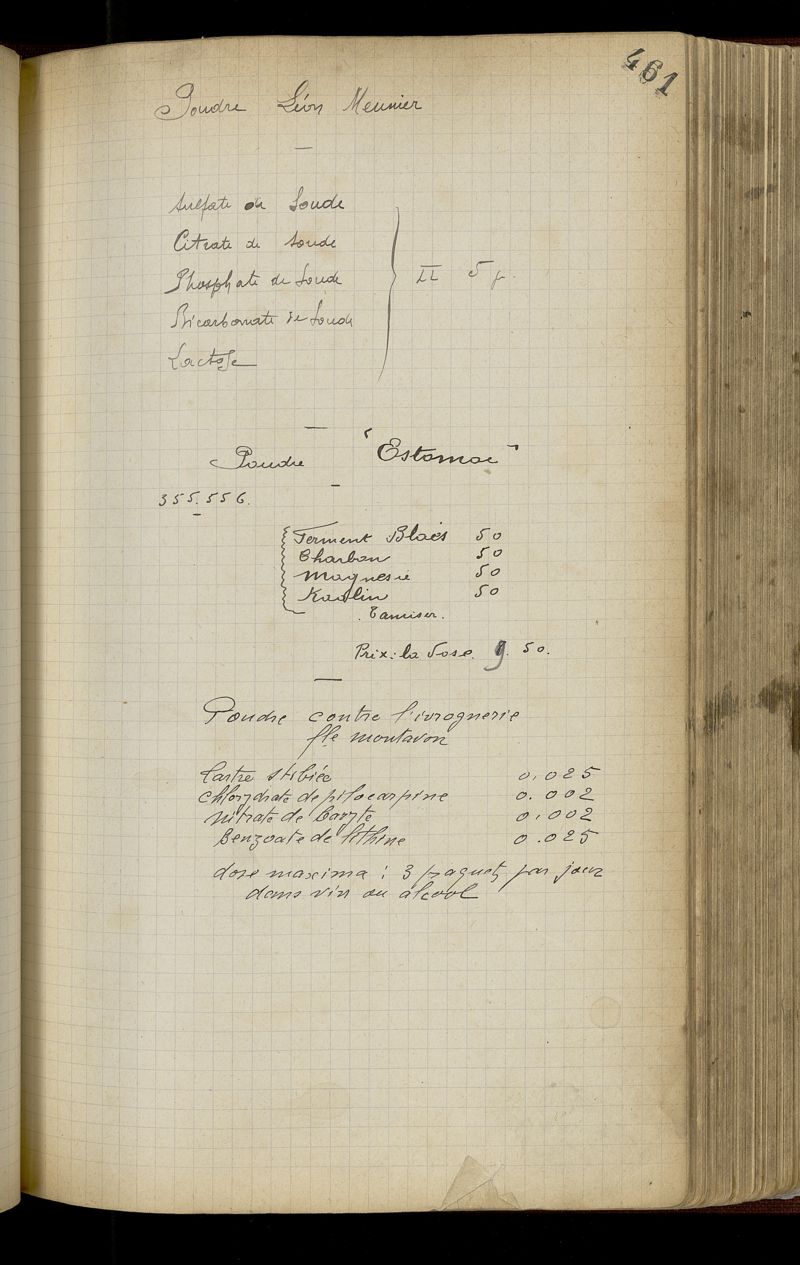 461
Poudre Léon Meunier
Sulfate de Soude
Citrate de Soude
Phosphate de Soude
Bicarbonate de Soude
Lactose
5 g.
Poudre "Estomac"
355.556.
Ferment Blaes 50
Charbon 50
Magnesie 50
Kaolin 50
Tamiser.
Prix: la dose 9.50.
Poudre contre l'ivrognerie
fle montavon
Tartre stibiée 0.025
Chlorydrate de pilocarpine 0.002
Nitrate de baryte 0.002
Benzoate de lithine 0.025
dose maxima : 3 paquets par jour
dans vin ou alcool